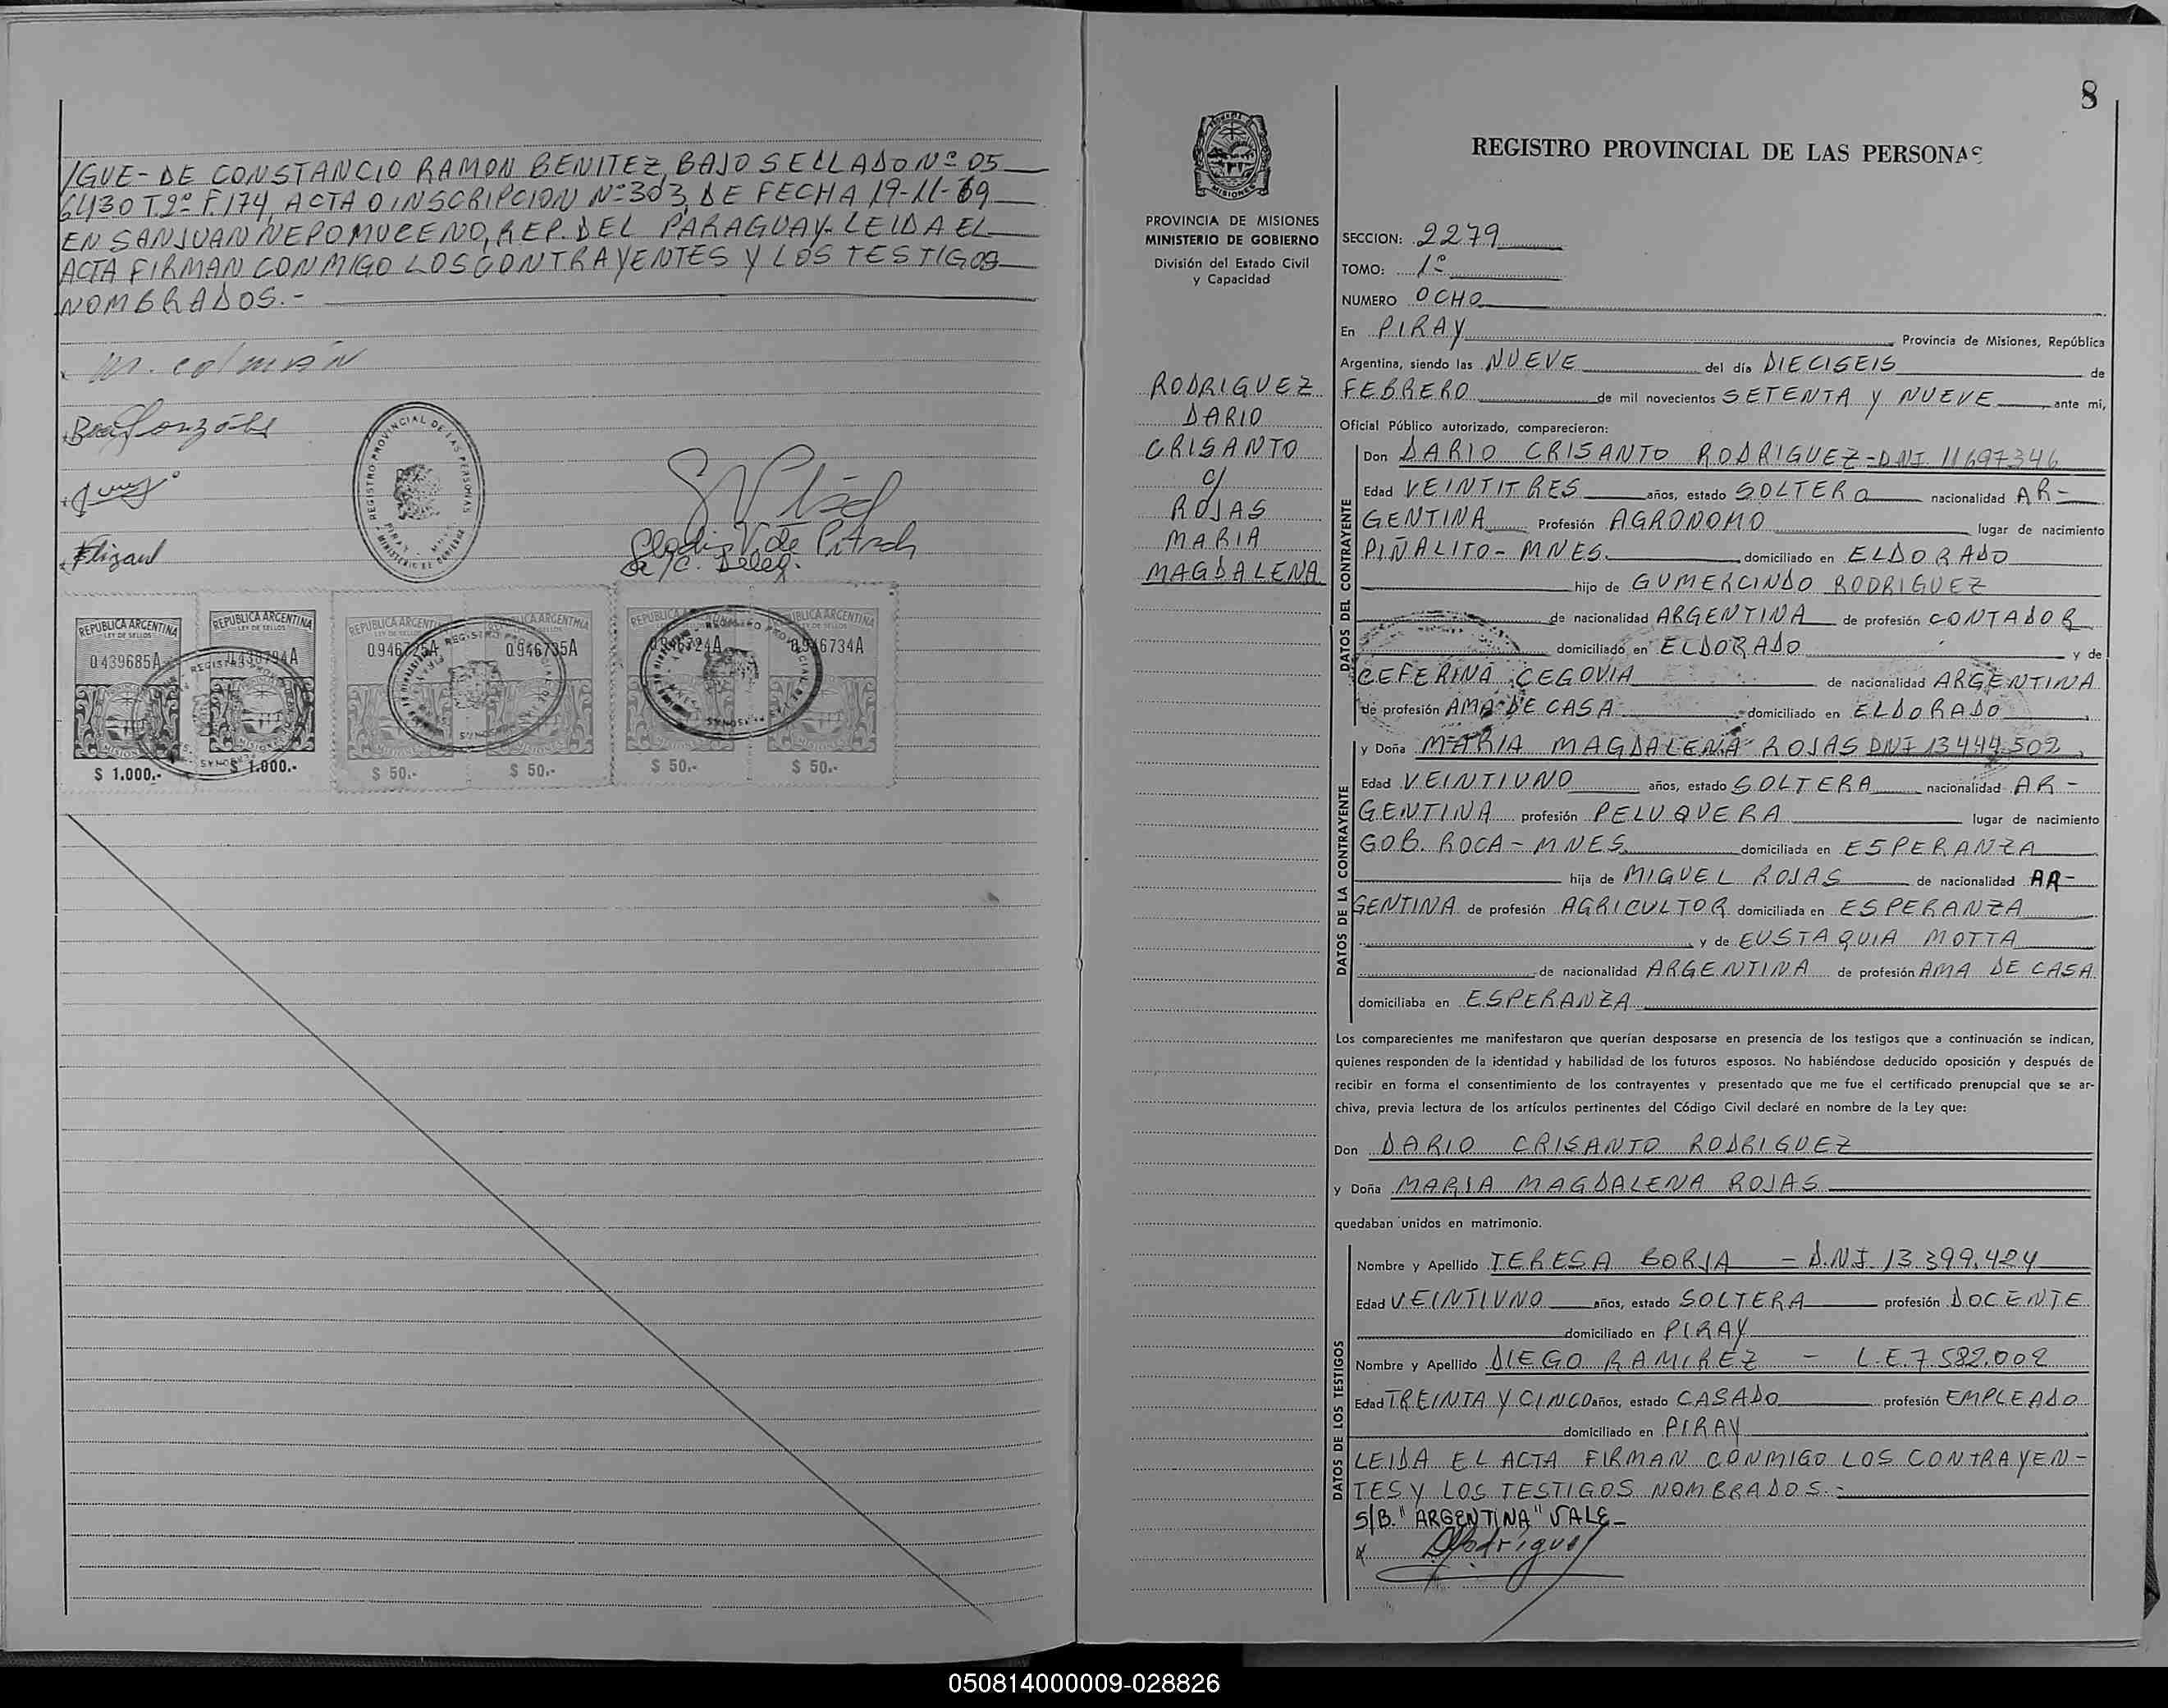 IGUE- DE CONSTANCIO RAMON BENITEZ, BAJO SELLADO Nº 05
6430 T.2º F.174, ACTA O INSCRIPCION Nº 303, DE FECHA 19-11-69
EN SAN JUAN NEPOMUCENO, REP. DEL PARAGUAY- LEIDA EL
ACTA FIRMAN CONMIGO LOS CONTRAYENTES Y LOS TESTIGOS
NOMBRADOS.-
M. COLMAN
REGISTRO PROVINCIAL DE LAS PERSONAS
PIRAY
MINISTERIO DE GOBIERNO
REPUBLICA ARGENTINA REPUBLICA ARGENTINA REPUBLICA ARGENTINA REPUBLICA ARGENTINA REPUBLICA ARGENTINA REPUBLICA ARGENTINA
LEY DE SELLOS LEY DE SELLOS LEY DE SELLOS LEY DE SELLOS
0439685A 0946735A 0946734A
MISIONES
$ 1.000.- $ 1.000.- $ 50.- $ 50.- $ 50.- $ 50.-
8
REGISTRO PROVINCIAL DE LAS PERSONAS
MISIONES
PROVINCIA DE MISIONES
MINISTERIO DE GOBIERNO
División del Estado Civil
y Capacidad
RODRIGUEZ
DARIO
CRISANTO
c/
ROJAS
MARIA
MAGDALENA
SECCION: 2279
TOMO: 1º
NUMERO OCHO
En PIRAY Provincia de Misiones, República
Argentina, siendo las NUEVE del día DIECISEIS de
FEBRERO de mil novecientos SETENTA Y NUEVE, ante mi,
Oficial Público autorizado, comparecieron:
DATOS DEL CONTRAYENTE
Don DARIO CRISANTO RODRIGUEZ-DNI 11697346
Edad VEINTITRES años, estado SOLTERO nacionalidad AR-
GENTINA Profesión AGRONOMO lugar de nacimiento
PIÑALITO- MNES. domiciliado en ELDORADO
hijo de GUMERCINDO RODRIGUEZ
de nacionalidad ARGENTINA de profesión CONTADOR
domiciliado en ELDORADO y de
CEFERINA CEGOVIA de nacionalidad ARGENTINA
de profesión AMA DE CASA domiciliado en ELDORADO,
DATOS DE LA CONTRAYENTE
y Doña MARIA MAGDALENA ROJAS DNI 13444.502,
Edad VEINTIUNO años, estado SOLTERA nacionalidad AR-
GENTINA profesión PELUQUERA lugar de nacimiento
GOB. ROCA- MNES. domiciliada en ESPERANZA
hija de MIGUEL ROJAS de nacionalidad AR-
GENTINA de profesión AGRICULTOR domiciliada en ESPERANZA
y de EUSTAQUIA MOTTA
de nacionalidad ARGENTINA de profesión AMA DE CASA
domiciliaba en ESPERANZA
Los comparecientes me manifestaron que querían desposarse en presencia de los testigos que a continuación se indican,
quienes responden de la identidad y habilidad de los futuros esposos. No habiéndose deducido oposición y después de
recibir en forma el consentimiento de los contrayentes y presentado que me fue el certificado prenupcial que se ar-
chiva, previa lectura de los artículos pertinentes del Código Civil declaré en nombre de la Ley que:
Don DARIO CRISANTO RODRIGUEZ
y Doña MARIA MAGDALENA ROJAS
quedaban unidos en matrimonio.
DATOS DE LOS TESTIGOS
Nombre y Apellido TERESA BORJA - D.NI. 13.399.424
Edad VEINTIUNO años, estado SOLTERA profesión DOCENTE
domiciliado en PIRAY
Nombre y Apellido DIEGO RAMIREZ - L.E. 7.582.002
Edad TREINTA Y CINCO años, estado CASADO profesión EMPLEADO
domiciliado en PIRAY
LEIDA EL ACTA FIRMAN CONMIGO LOS CONTRAYEN-
TES Y LOS TESTIGOS NOMBRADOS.-
S/B. "ARGENTINA" VALE-
050814000009-028826